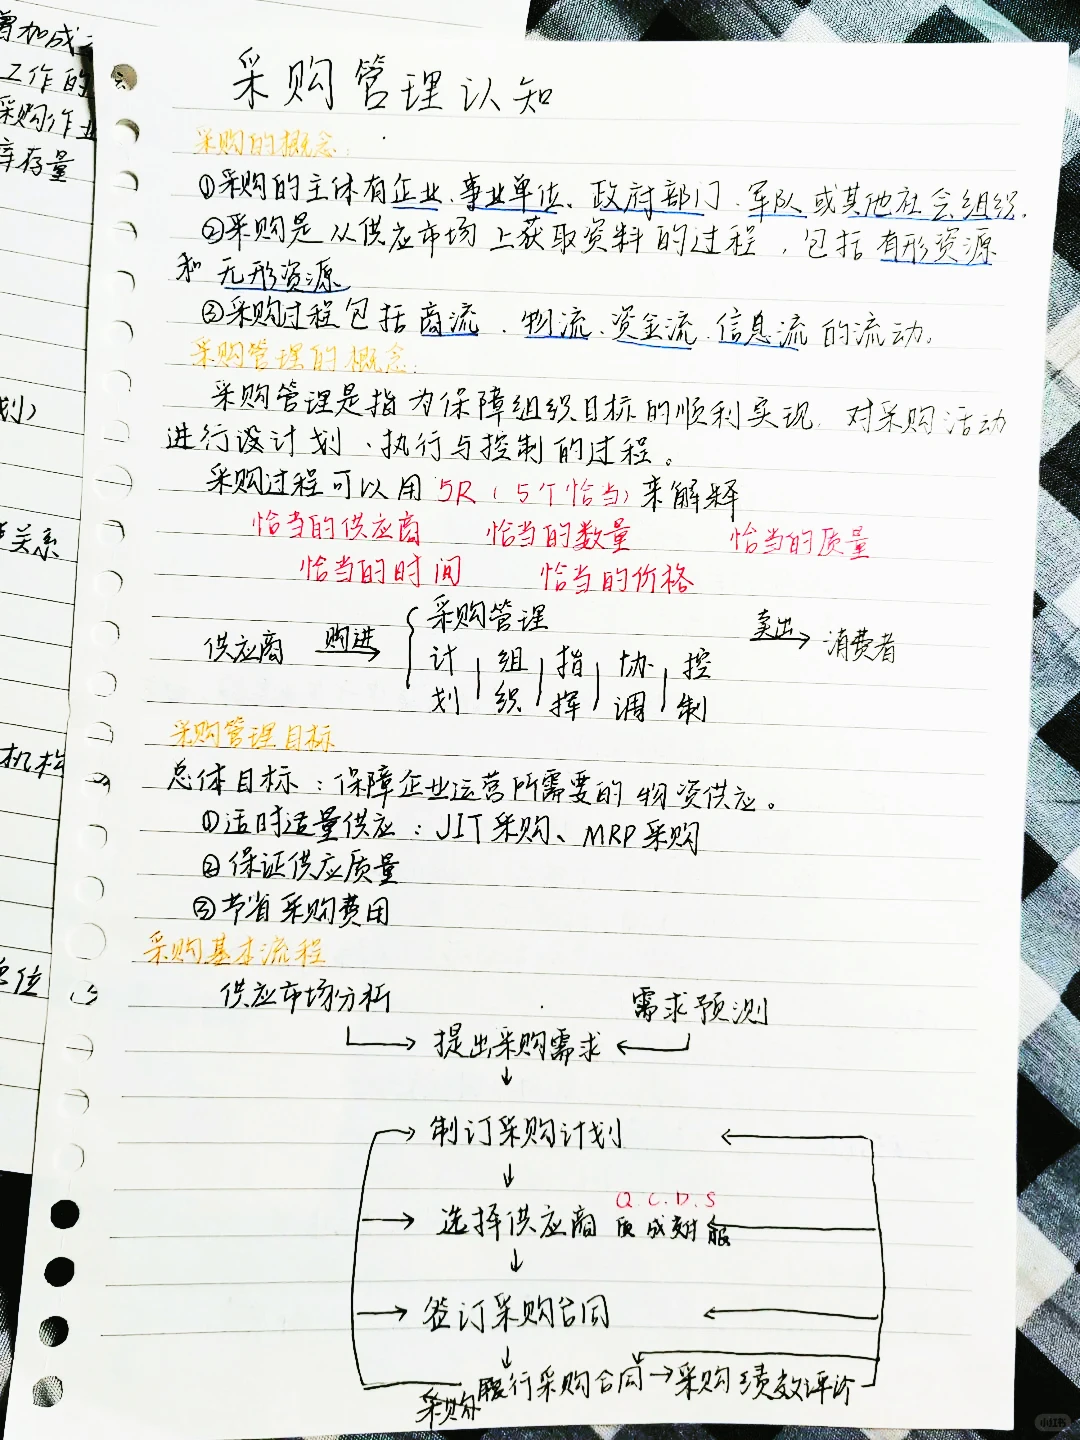 采购管理认知
采购的概念：
①采购的主体有企业、事业单位、政府部门、军队或其他社会组织。
②采购是从供应市场上获取资料的过程，包括有形资源
和无形资源
③采购过程包括商流、物流、资金流、信息流的流动。
采购管理的概念：
采购管理是指为保障组织目标的顺利实现，对采购活动
进行设计划、执行与控制的过程。
采购过程可以用5R（5个恰当）来解释
恰当的供应商 恰当的数量 恰当的质量
恰当的时间 恰当的价格
供应商 购进 采购管理 卖出 消费者
计划 组织 指挥 协调 控制
采购管理目标
总体目标：保障企业运营所需要的物资供应。
①适时适量供应：JIT采购、MRP采购
②保证供应质量
③节省采购费用
采购基本流程
供应市场分析 需求预测
提出采购需求
制订采购计划
Q.C.D.S
选择供应商 质成交付服
签订采购合同
履行采购合同 采购绩效评价
采购
增加成
工作的
采购作业
库存量
划）
关系
机构
单位
小红书